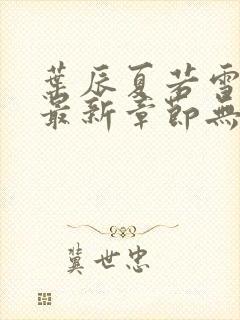 葉辰夏若雪
最新章節無
冀世忠